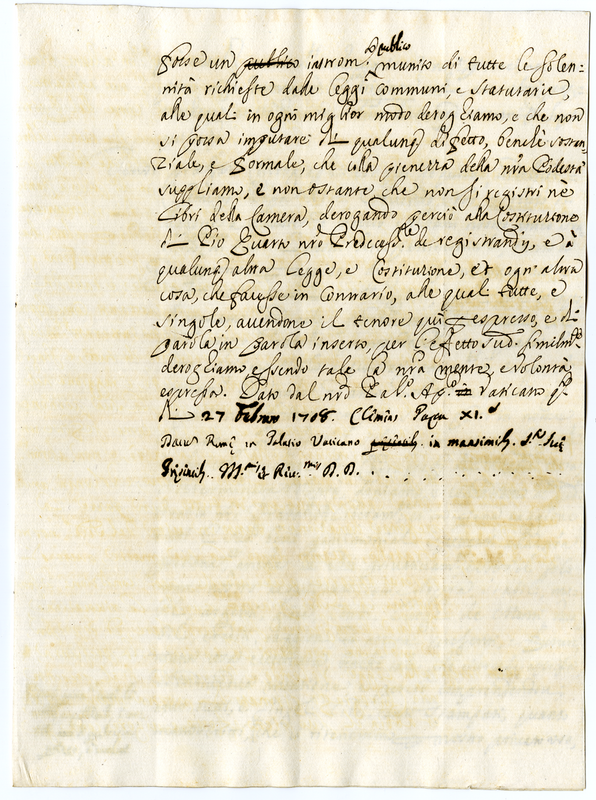 publico
fosse un publico instrom.to munito di tutte le solen-
nità richieste dalle leggi communi, e statutarie,
alle quali in ogni miglior modo deroghiamo, e che non
si possa imputare di qualunq difetto, benche sostan-
ziale, e formale, che colla pienezza della nra Podestà
suppliamo, e non ostante che non si registri ne
libri della Camera, derogando perciò alla Costituzione
di Pio Quarto nro Predecess.re de registrandis, e à
qualunq altra legge, e Costituzione, et ogn'altra
cosa, che facesse in contrario, alle quali tutte, e
singole, avendone il tenore quì espresso, e di
parola in parola inserto, per l'effetto sud.o similm.te
deroghiamo essendo tale la nra mente, e volontà
espressa. Dato dal nro Pal.o Ap.o in Vaticano q.o
di 27 Febraro 1708. Clemens Papa XI.s
Datum Rome in Palatio Vaticano in